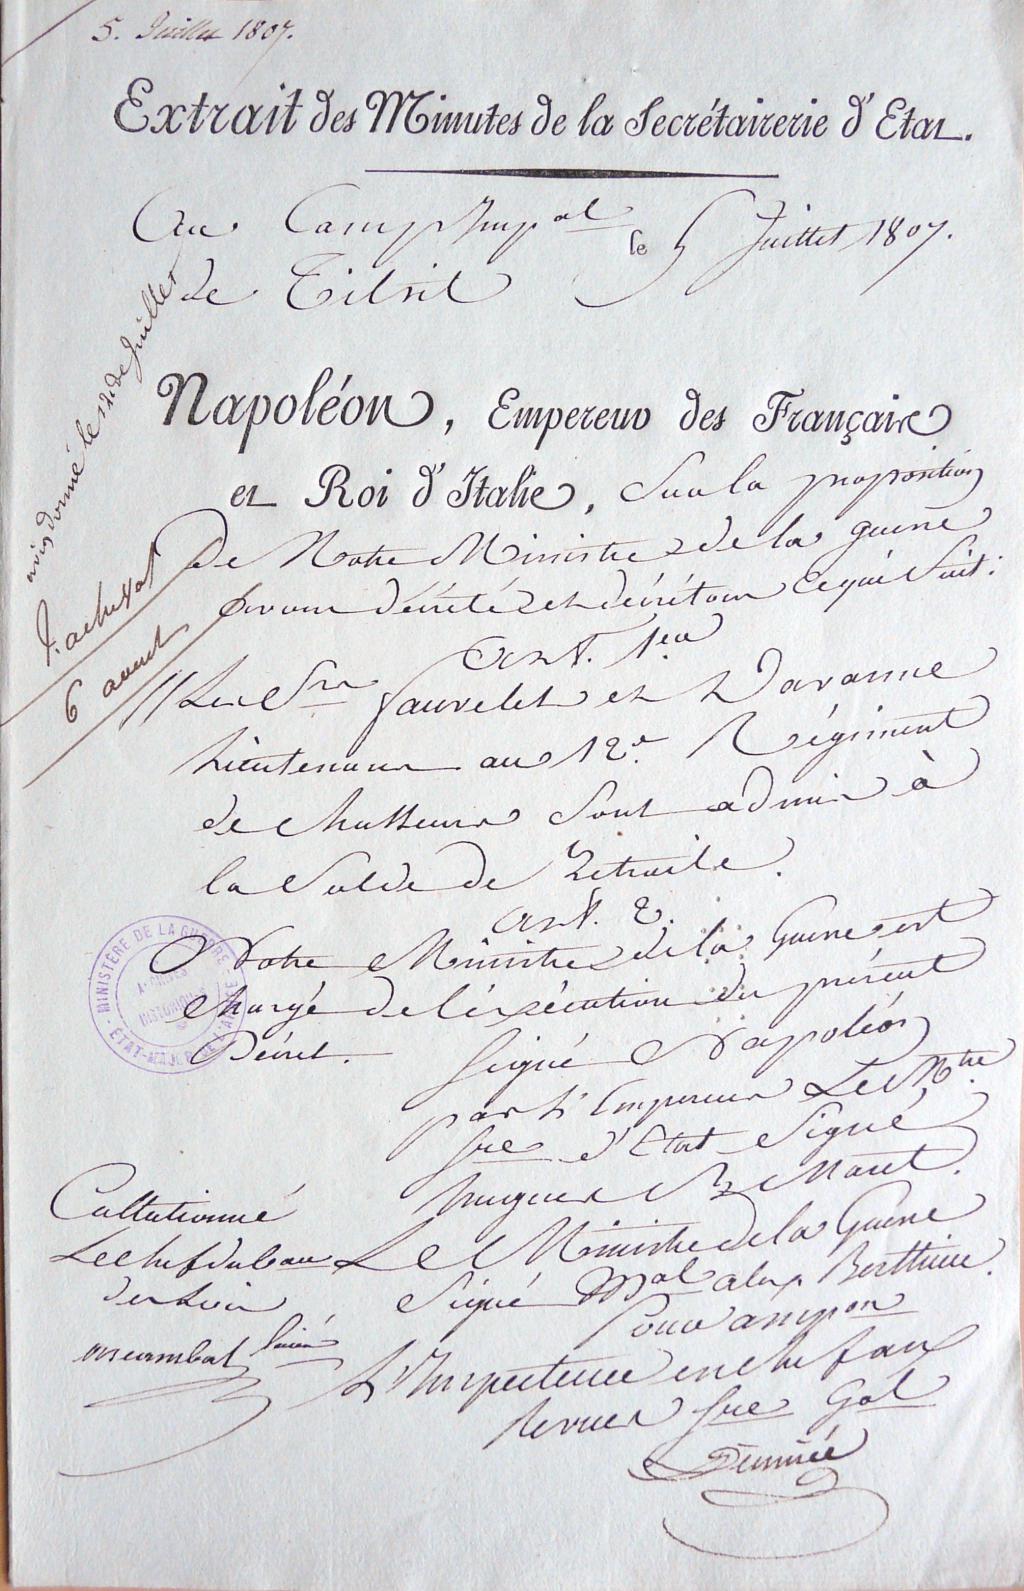 5. Juillet 1807.
Extrait des Minutes de la Secrétairerie d'Etat.
Au Camp Imp.al le 5 Juillet 1807.
de Tilsit
avis donné le 14 de Juillet
Napoléon, Empereur des Français
et Roi d'Italie, Sur la proposition
De Notre Ministre de la guerre
avons décrété et décrétons ce qui Suit:
6 avril
Art. 1.er
Les Srs fauvelet et Davanne
Lieutenans au 12.e Régiment
de chasseurs Sont admis à
la Solde de Retraite.
art. 2.
Notre Ministre de la Guerre est
chargé de l'exécution du présent
Décret.
MINISTÈRE DE LA GUERRE
ARCHIVES HISTORIQUES
ÉTAT-MAJOR DE L'ARMÉE
Signé Napoléon
par L'Empereur Le M.tre
Sre d'Etat Signé
hugues B. Maret.
Collationné
Le chef du Bau
des Lois
Le Ministre de la Guerre
Signé Mal alex Berthier.
Pour ampon
L'Inspecteur en chef aux
revues Sre Gal
Denniée